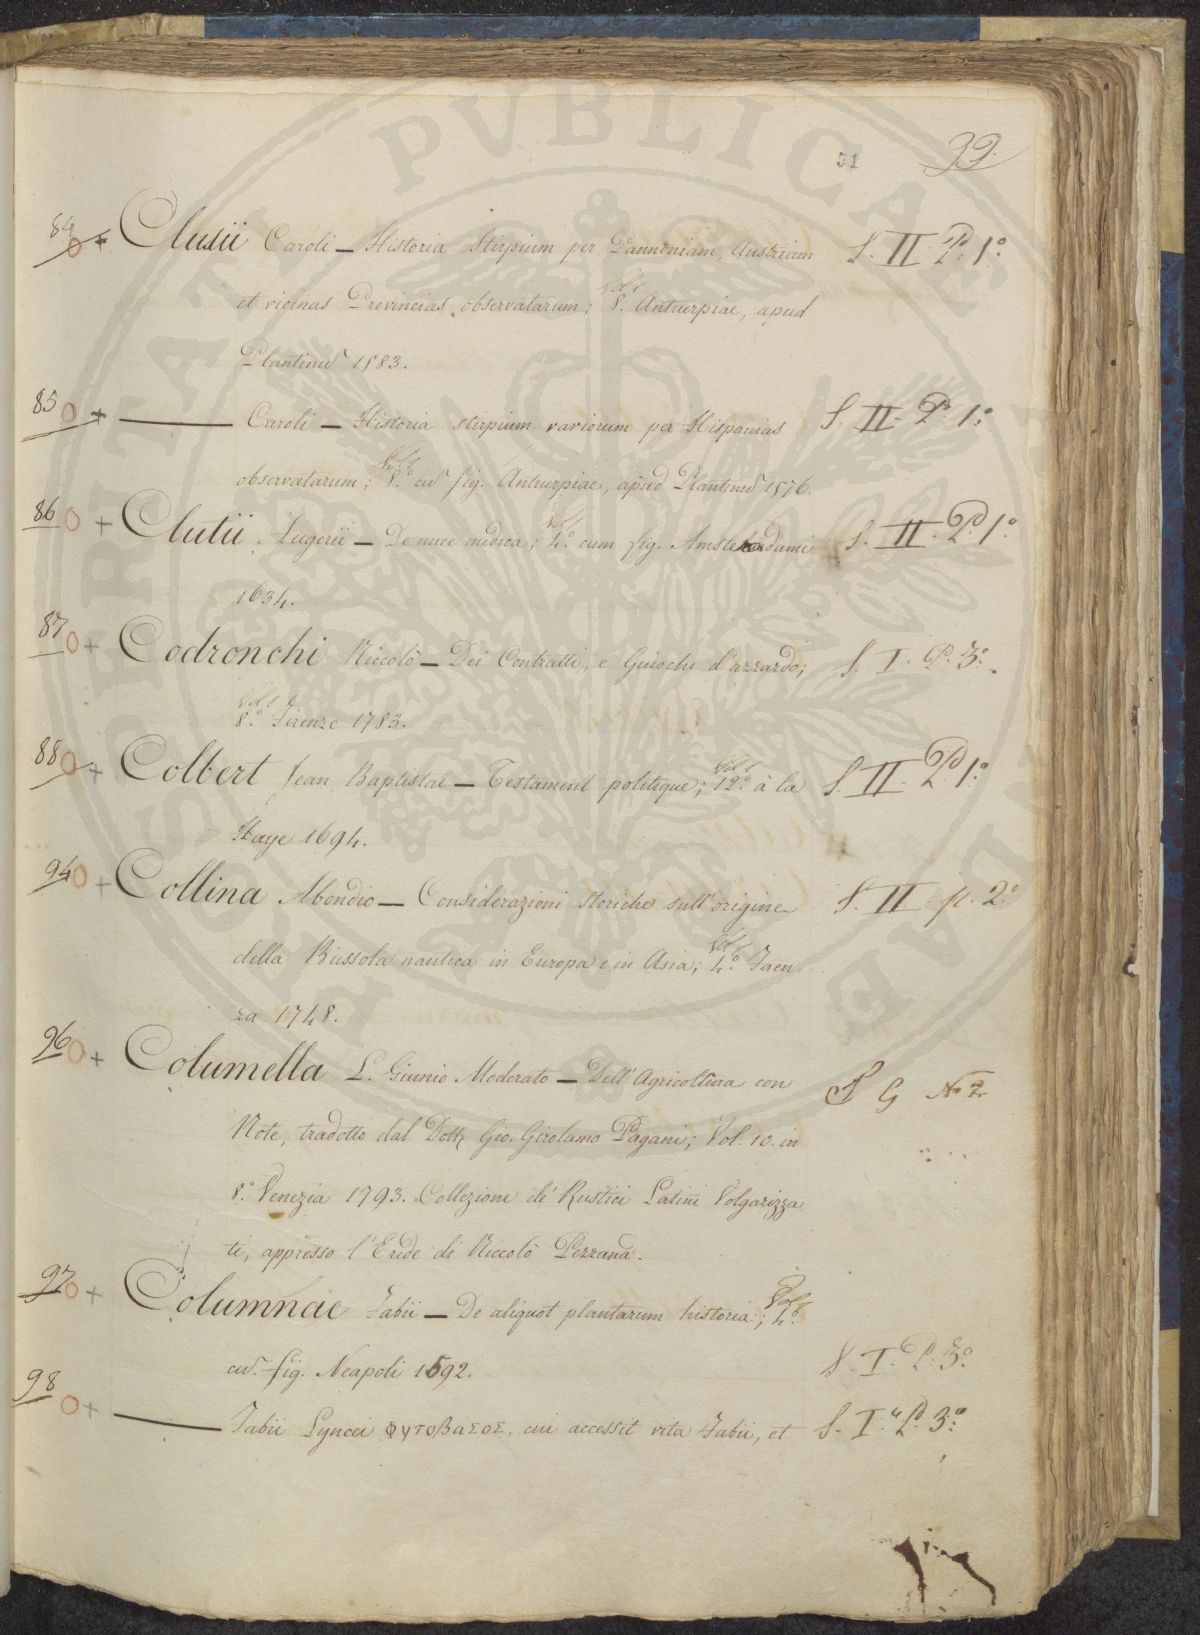 51 99.
84 Clusii Caroli – Historia stirpium per Pannoniam, Austriam S. II. P. 1.º
et vicinas Provincias, observatarum; Vol. 1 8.º Antuerpiae, apud
Plantinū 1583.
85 Caroli – Historia stirpium rariorum per Hispanias S. II. P. 1.º
observatarum; Vol. 1 8.º cū fig. Antuerpiae, apud Plantinū 1576.
86 Clutii Augerii – De nuce medica; Vol. 1 4.º cum fig. Amstelodami S. II. P. 1.º
1634.
87 Codronchi Niccolò – Dei Contratti, e Guiochi d'azzardo; S. I. P. 3.º
Vol. 1 8.º Firenze 1783.
88 Colbert Jean Baptistae – Testament politique; Vol. 1 12.º à la S. II. P. 1.º
Haye 1694.
94 Collina Abondio – Considerazioni storiche sull'origine S. II. p. 2.º
della Bussola nautica in Europa e in Asia; Vol. 1 4.º Faen
za 1748.
96 Columella L. Giunio Moderato – Dell'Agricoltura con S G No 2
Note, tradotto dal Dott. Gio. Girolamo Pagani; Vol. 10. in
8.º Venezia 1793. Collezione de' Rustici Latini Volgarizza
ti, appresso l'Erede di Niccolò Pezzana.
97 Columnae Fabii – De aliquot plantarum historia; Vol. 1 4.º
cū fig. Neapoli 1592. S. I. P. 3.º
98 Fabii Lyncei ΦυτοβαΣοΣ, cui accessit vita Fabii, et S. I. P. 3.º